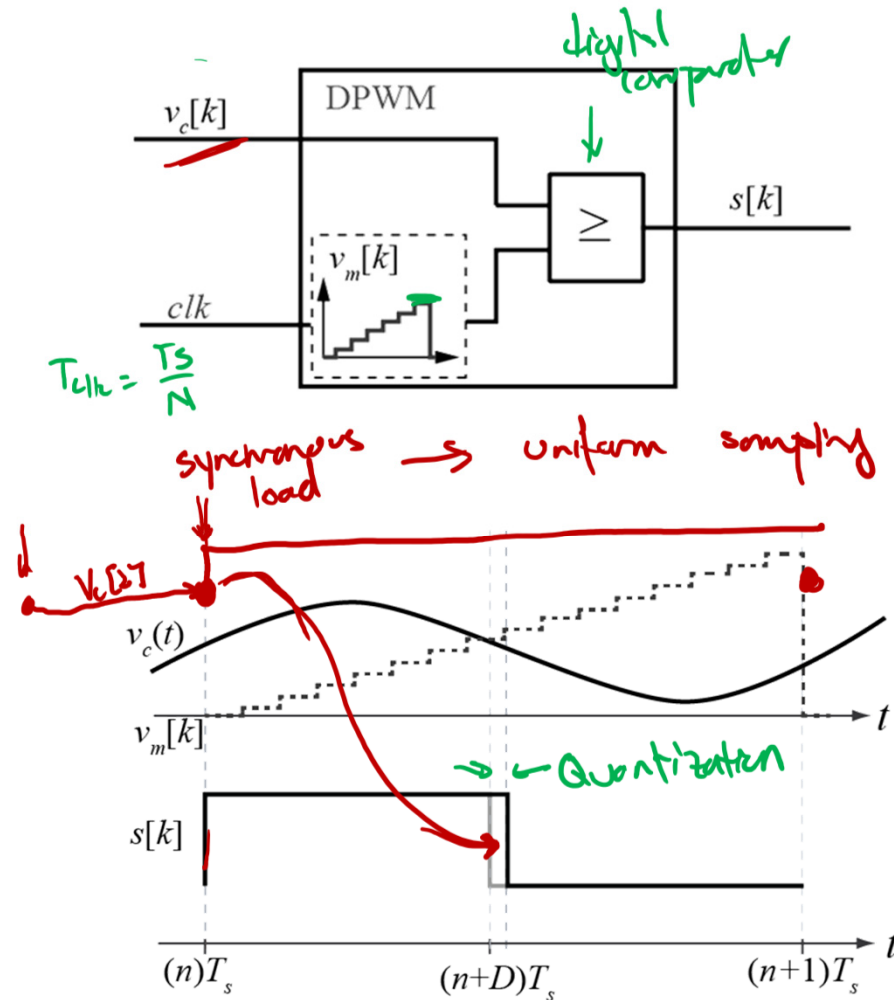 digital
comparator
DPWM
v_c[k]
≥
s[k]
v_m[k]
clk
T_clk = Ts/N
synchronous → uniform sampling
load
v_c(t)
v_m[k]
t
→ ← Quantization
s[k]
t
(n)T_s
(n+D)T_s
(n+1)T_s